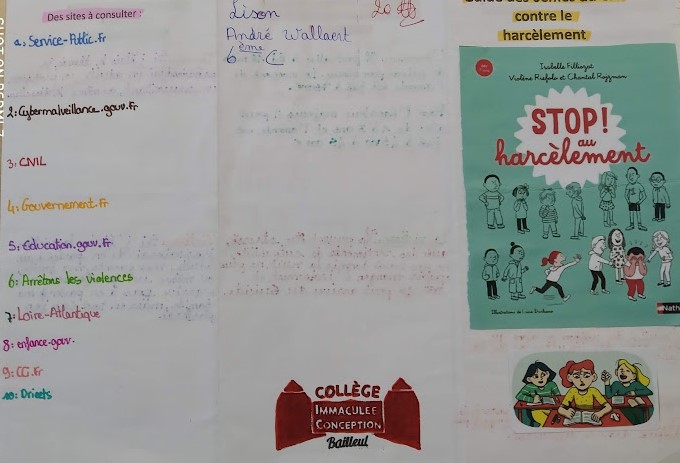 Des sites à consulter :
1: Service-Public.Fr
2: Cybermalveillance.gouv.Fr
3: CNIL
4: Gouvernement.Fr
5: Education.gouv.Fr
6: Arrêtons les violences
7: Loire-Atlantique
8: enfance-gouv.
9: CG.Fr
10: Drieets
Lison
André Wallaert
6ème
20
contre le
harcèlement
Isabelle Filliozat
Violène Riefolo et Chantal Rojzman
STOP!
au
harcèlement
Nathan
COLLÈGE
IMMACULEE
CONCEPTION
Bailleul